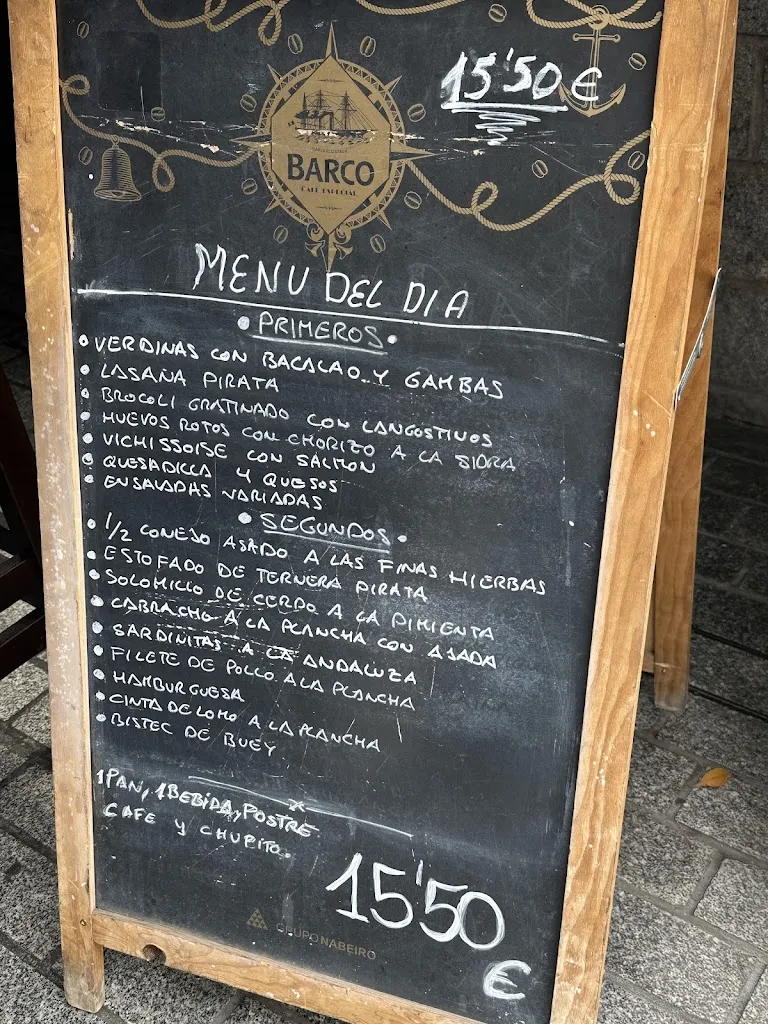 15'50 €
BARCO
CAFÉ ESPECIAL
MENU DEL DIA
• PRIMEROS •
• VERDINAS CON BACALAO Y GAMBAS
• LASAÑA PIRATA
• BROCOLI GRATINADO CON LANGOSTINOS
• HUEVOS ROTOS CON CHORIZO A LA SIDRA
• VICHISSOISE CON SALMON
• QUESADILLA 4 QUESOS
• ENSALADAS VARIADAS
• SEGUNDOS •
• 1/2 CONEJO ASADO A LAS FINAS HIERBAS
• ESTOFADO DE TERNERA PIRATA
• SOLOMILLO DE CERDO A LA PIMIENTA
• CABRACHO A LA PLANCHA CON AJADA
• SARDINITAS A LA ANDALUZA
• FILETE DE POLLO A LA PLANCHA
• HAMBURGUESA
• CINTA DE LOMO A LA PLANCHA
• BISTEC DE BUEY
1 PAN, 1 BEBIDA, POSTRE
CAFE Y CHUPITO.
15'50
€
GRUPO NABEIRO